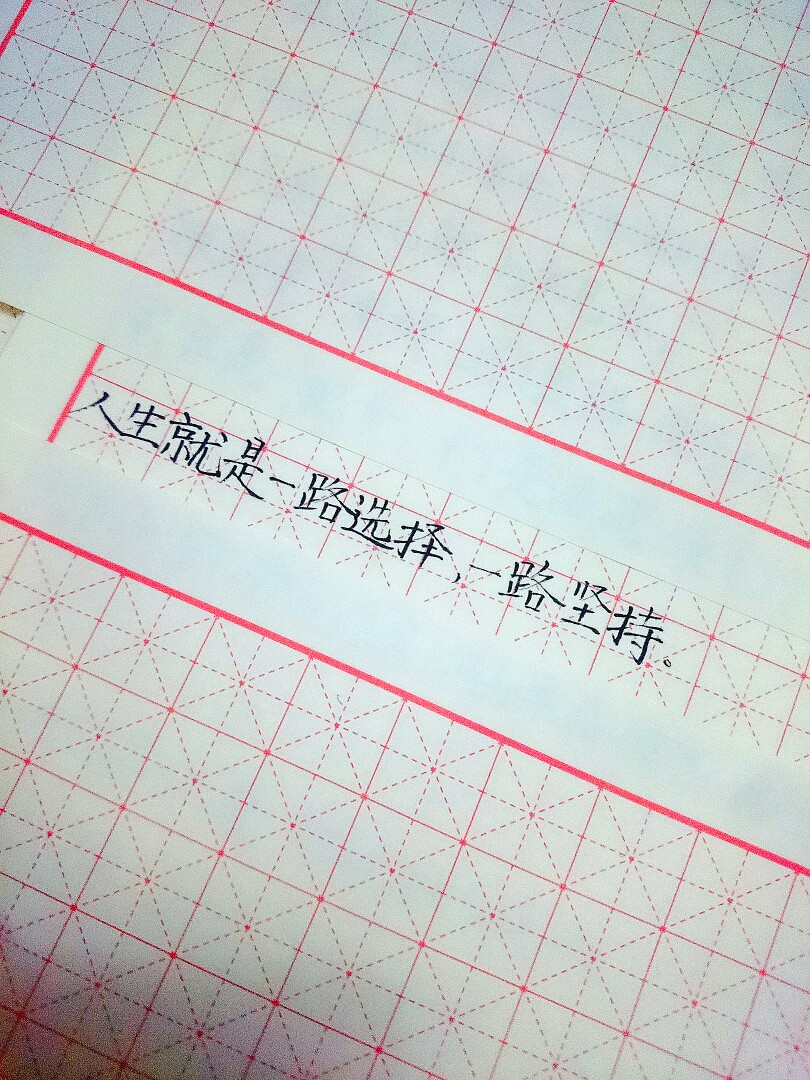 人生就是一路选择,一路坚持。